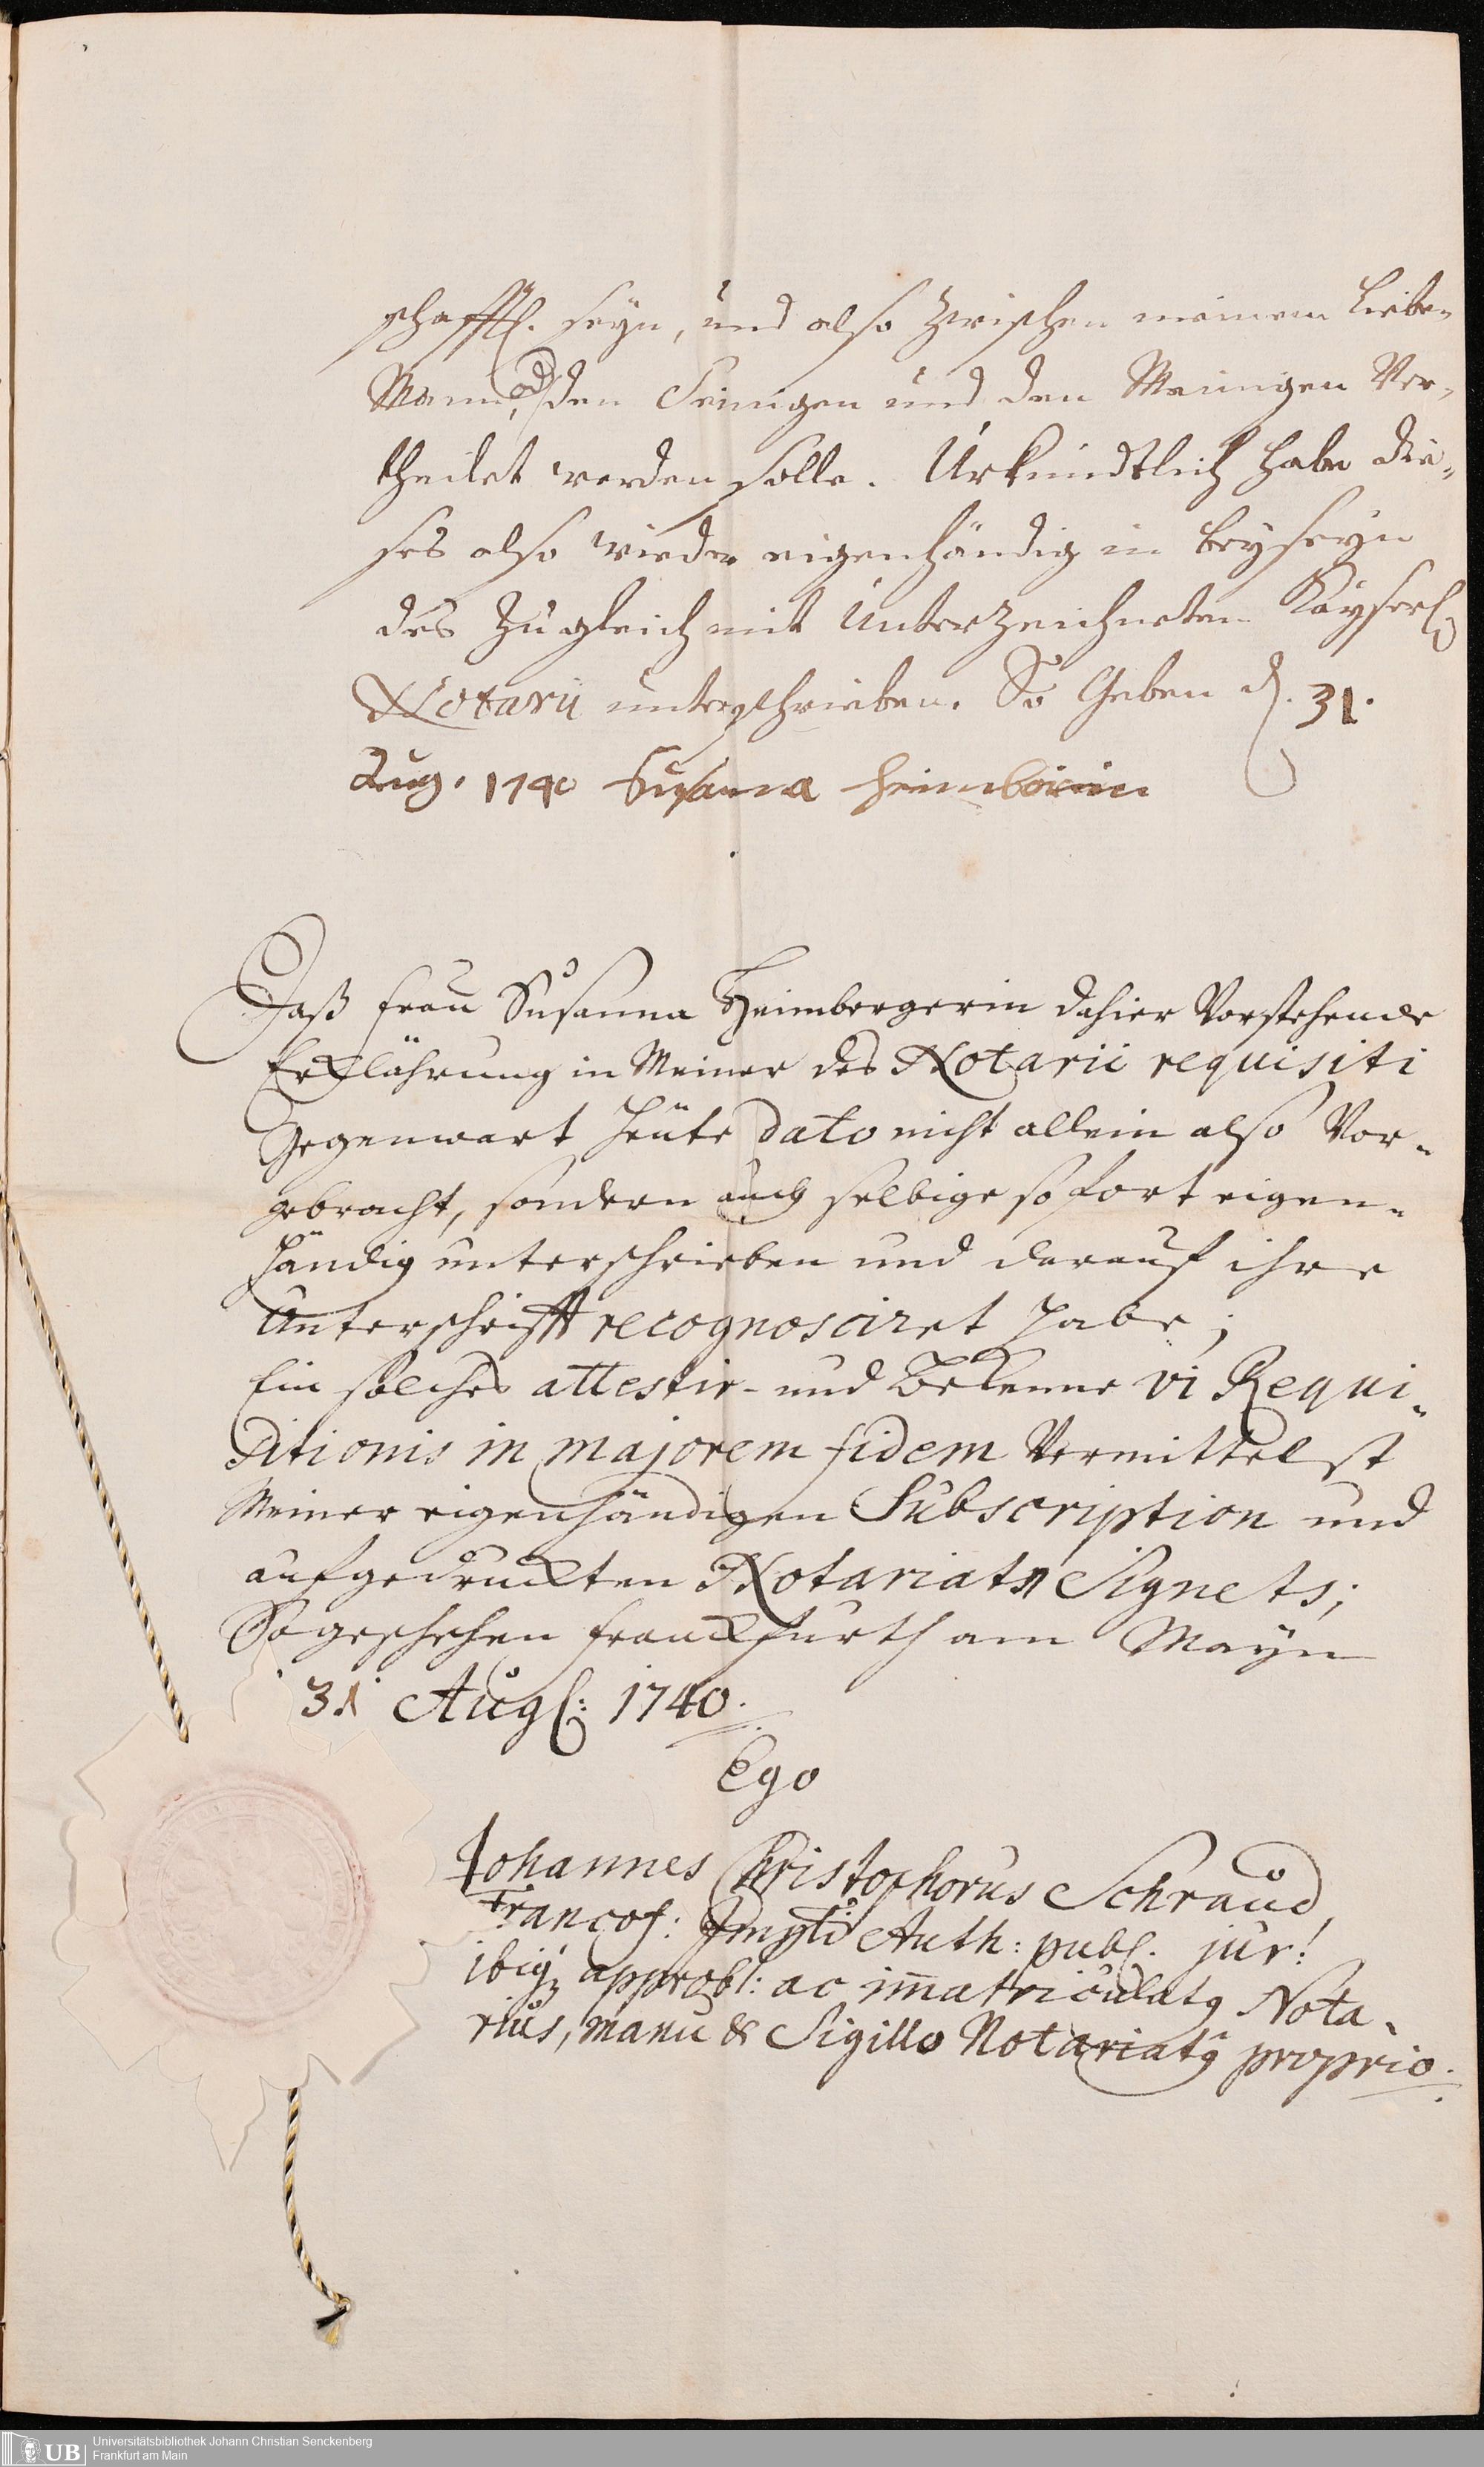 schafftl. seyn, und also zwischen meinem Lieben
Mann, od den Seinigen und den Meinigen Ver-
theilet werden solle. Urkundtlich habe die-
ses also wieder eigenhändig in beyseyn
des zugleich mit Unterzeichneten Kayserl.
Notarii unterschrieben. So Geben d. 31.
Aug. 1740 Susanna
Daß Frau Susanna Heimbergerin dahier Vorstehende
Erklährung in Meiner des Notarii requisiti
Gegenwart heüte dato nicht allein also Vor-
gebracht, sondern auch selbige sofort eigen-
händig unterschrieben und darauf ihre
Unterschrifft recognosciret habe;
Ein solches attestir- und Bekenne vi Requi-
sitionis in majorem fidem Vermittelst
Meiner eigenhändigen Subscription und
aufgedruckten Notariats Signets;
So geschehen Franckfurth am Mayn
31 Augl: 1740.
Ego
Johannes Christophorus Schraud,
Francof: Auth: publ. jur:
approbt: ac im̄atriculatq Nota-
rius, manu & Sigillo Notariatq proprio.
UB Universitätsbibliothek Johann Christian Senckenberg
Frankfurt am Main